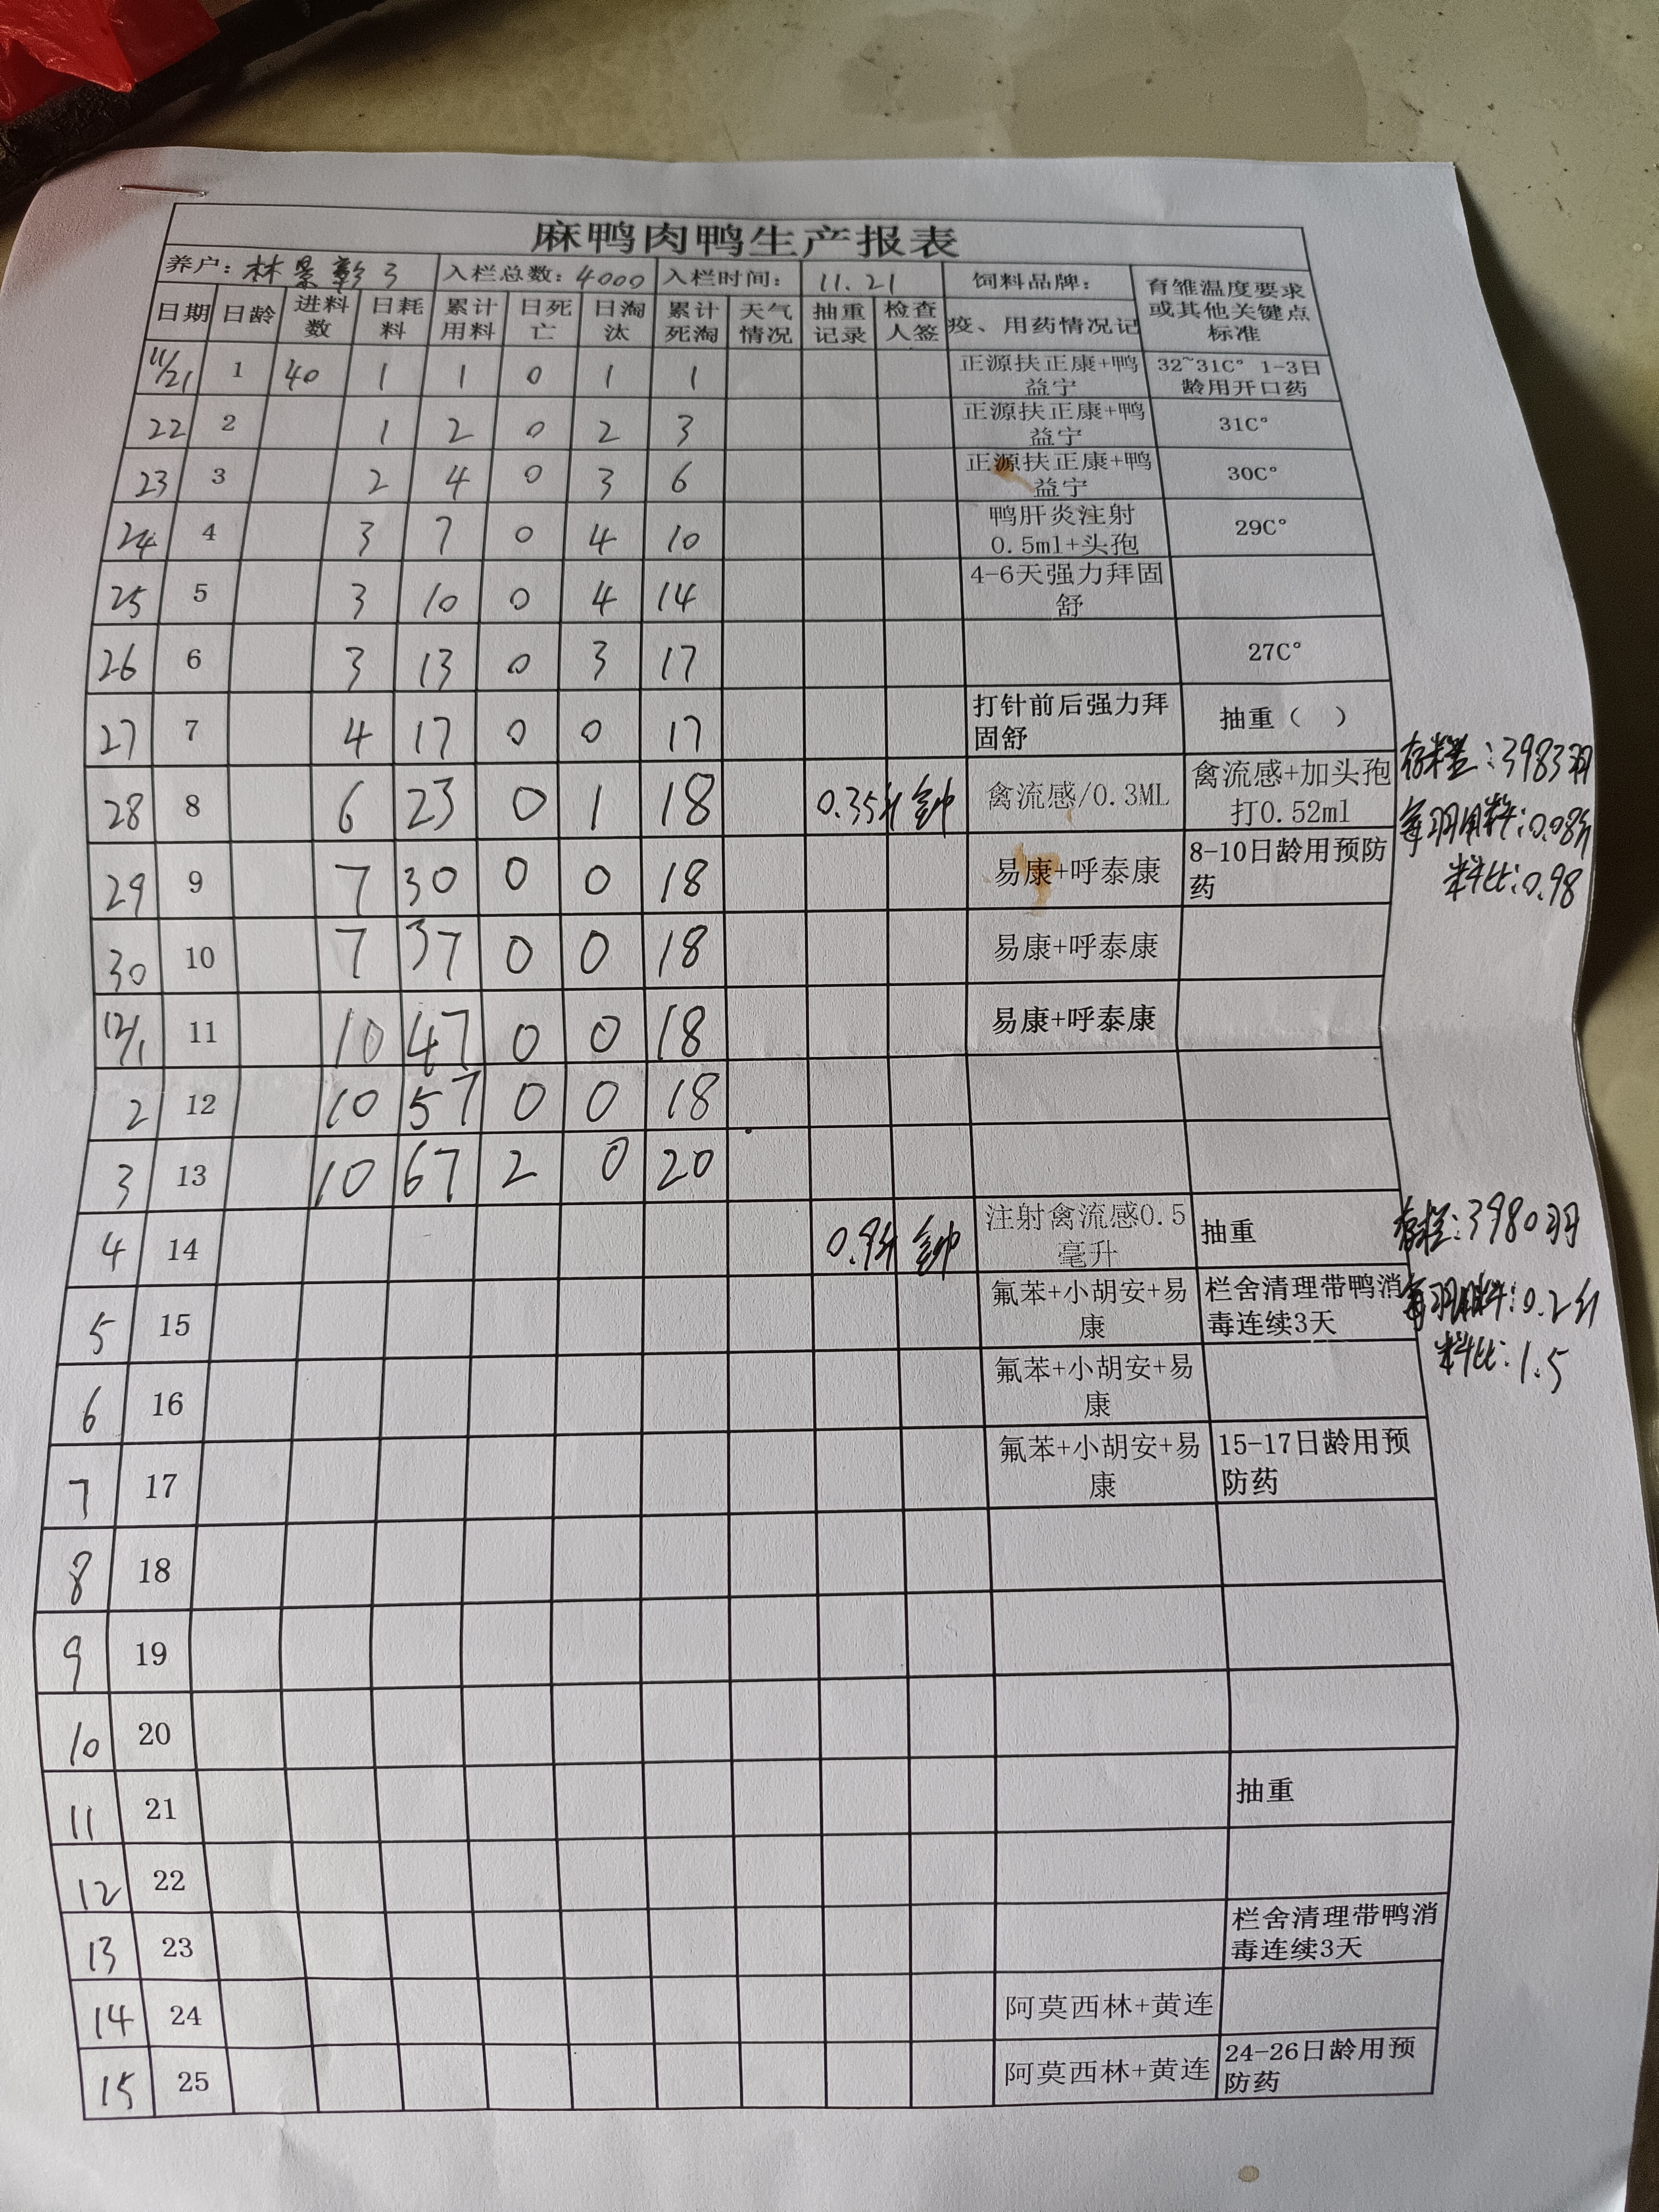 麻鸭肉鸭生产报表
养户：林景彰3 入栏总数：4000 入栏时间： 11.21 饲料品牌： 育雏温度要求或其他关键点标准
日期 日龄 进料数 日耗料 累计用料 日死亡 日淘汰 累计死淘 天气情况 抽重记录 检查人签 疫、用药情况记
11/21 1 40 1 1 0 1 1 正源扶正康+鸭益宁 32~31C° 1-3日龄用开口药
22 2 1 2 0 2 3 正源扶正康+鸭益宁 31C°
23 3 2 4 0 3 6 正源扶正康+鸭益宁 30C°
24 4 3 7 0 4 10 鸭肝炎注射0.5ml+头孢 29C°
25 5 3 10 0 4 14 4-6天强力拜固舒
26 6 3 13 0 3 17 27C°
27 7 4 17 0 0 17 打针前后强力拜固舒 抽重（ ）
28 8 6 23 0 1 18 0.35斤 禽流感/0.3ML 禽流感+加头孢打0.52ml
存栏：3983羽
每羽用料：0.08斤
料比：0.98
29 9 7 30 0 0 18 易康+呼泰康 8-10日龄用预防药
30 10 7 37 0 0 18 易康+呼泰康
12/1 11 10 47 0 0 18 易康+呼泰康
2 12 10 57 0 0 18
3 13 10 67 2 0 20
4 14 0.9斤 注射禽流感0.5毫升 抽重
存栏：3980羽
每羽用料：0.2斤
料比：1.5
5 15 氟苯+小胡安+易康 栏舍清理带鸭消毒连续3天
6 16 氟苯+小胡安+易康
7 17 氟苯+小胡安+易康 15-17日龄用预防药
8 18
9 19
10 20
11 21 抽重
12 22
13 23 栏舍清理带鸭消毒连续3天
14 24 阿莫西林+黄连
15 25 阿莫西林+黄连 24-26日龄用预防药